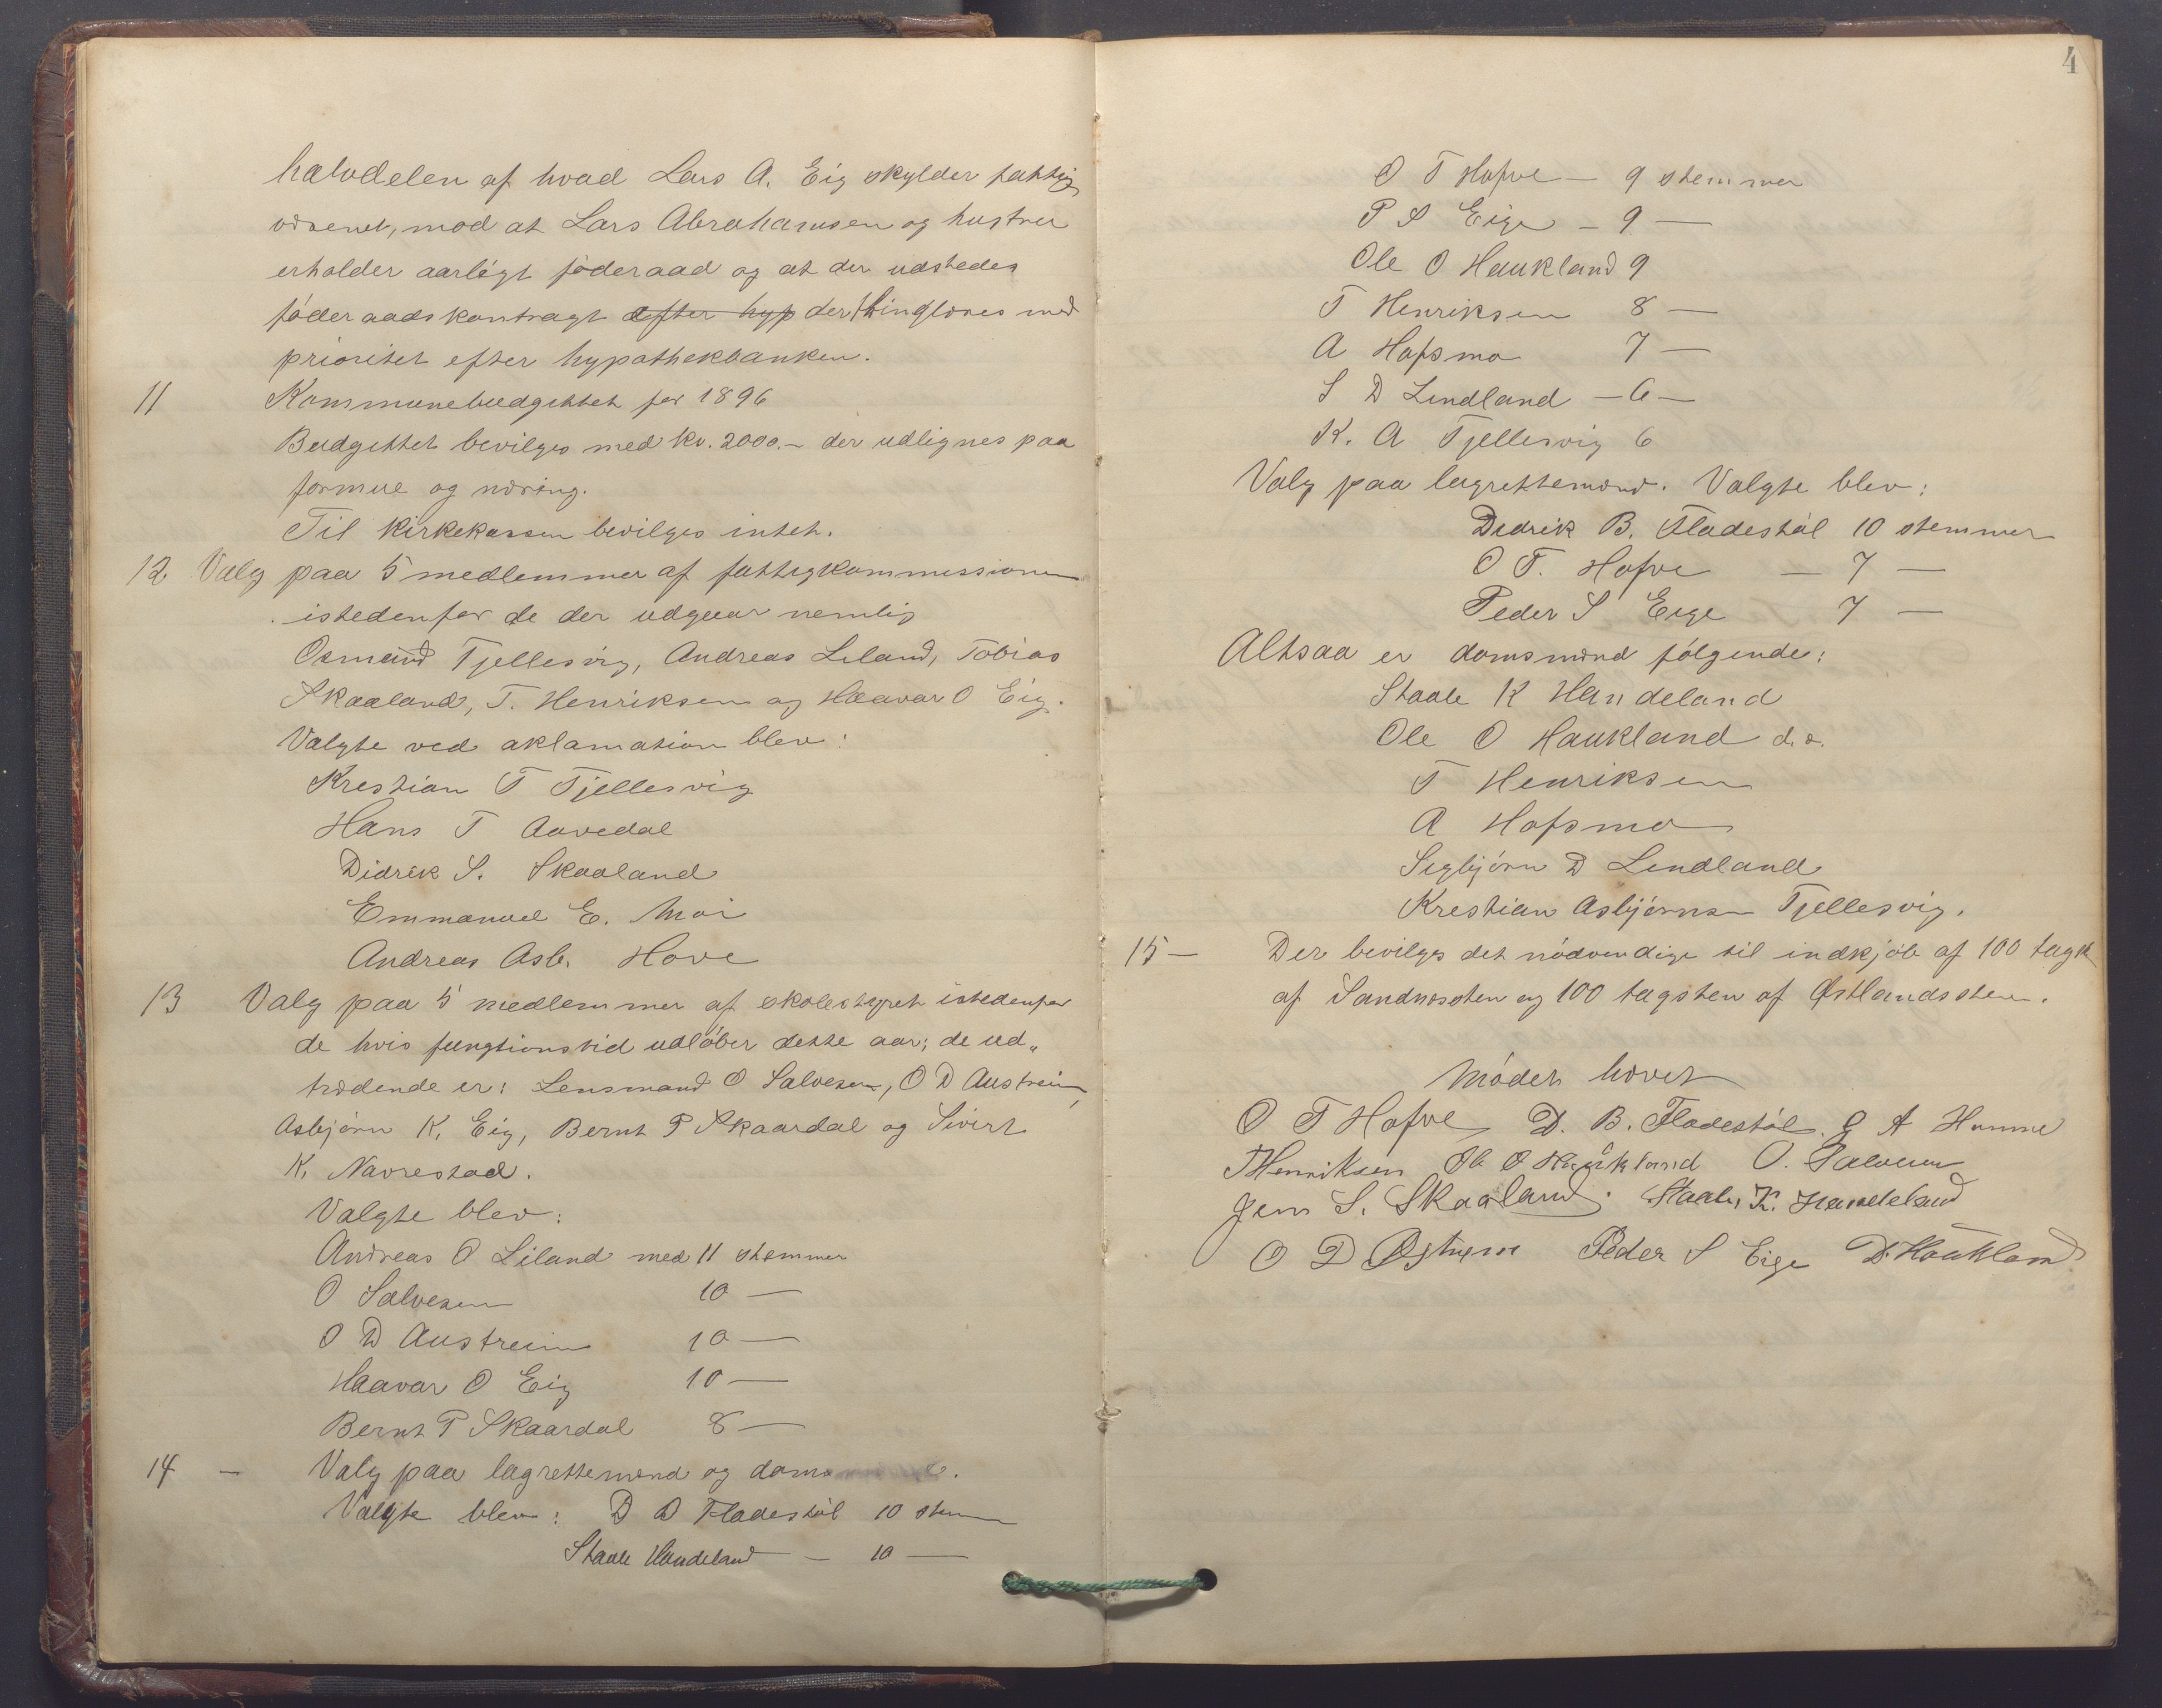 halvdelen af hvad Lars A. Eig skylder fattig
væsenet, mod at Lars Abrahamsen og hustru
erholder aarligt føderaad og at der udstedes
føderaadskontragt efter hyp der thinglæses med
prioritet efter hypothekbanken.
11 Kommunebudgettet for 1896
Budgettet bevilges med kr. 2000.- der udlignes paa
formue og næring.
Til kirkekassen bevilges intet.
12 Valg paa 5 medlemmer af fattigkommissionen
istedenfor de der udgaar nemlig
Osmund Tjellesvig, Andreas Liland, Tobias
Skaaland, T. Henriksen og Haavar O Eig.
Valgte ved aklamation blev:
Krestian T Tjellesvig
Hans T Aavedal
Didrik S. Skaaland
Emmanuel E. Moi
Andreas Asb. Hove
13 Valg paa 5 medlemmer af skolestyret istedenfor
de hvis fungtionstid udløber dette aar; de ud„
trædende er: Lensmand O Salvesen, O D Austreim,
Asbjørn K. Eig, Bernt P Skaardal og Sivert
K. Navrestad.
Valgte blev:
Andreas O Liland med 11 stemmer
O Salvesen 10 —
O D Austreim 10 —
Haavar O Eig 10 —
Bernt P Skaardal 8 —
14 — Valg paa lagrettemænd og doms
Valgte blev: D B Fladestøl 10 stem
Staale Handeland — 10 —
4
O T Hofve — 9 stemmer
P S Eige — 9 —
Ole O Haukland 9
T Henriksen 8 —
A Hofsmo 7 —
S D Lindland — 6 —
K. A Tjellesvig 6
Valg paa lagrettemænd. Valgte blev:
Didrik B. Fladestøl 10 stemmer
O T. Hofve — 7 —
Peder S Eige 7 —
Altsaa er domsmænd følgende:
Staale K Handeland
Ole O Haukland d.æ.
T Henriksen
A Hofsmo
Sigbjørn D Lindland
Krestian Asbjørnsen Tjellesvig.
15 — Der bevilges det nødvendige til indkjøb af 100 tagst
af Sandnessten og 100 tagsten af Østlandssten.
Mødet hævet
O T Hofve D. B. Fladestøl. G A Humme
THenriksen Ole O Haukland O. Salvesen
Jens S. Skaaland. Staale K. Handeland
O D Østrem Peder S Eige D. Haukland